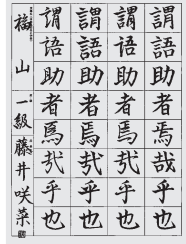 謂語助者焉哉乎也
謂語助者焉哉乎也
謂語助者焉哉乎也
謂語助者焉哉乎也
福山 一級 藤井咲菜